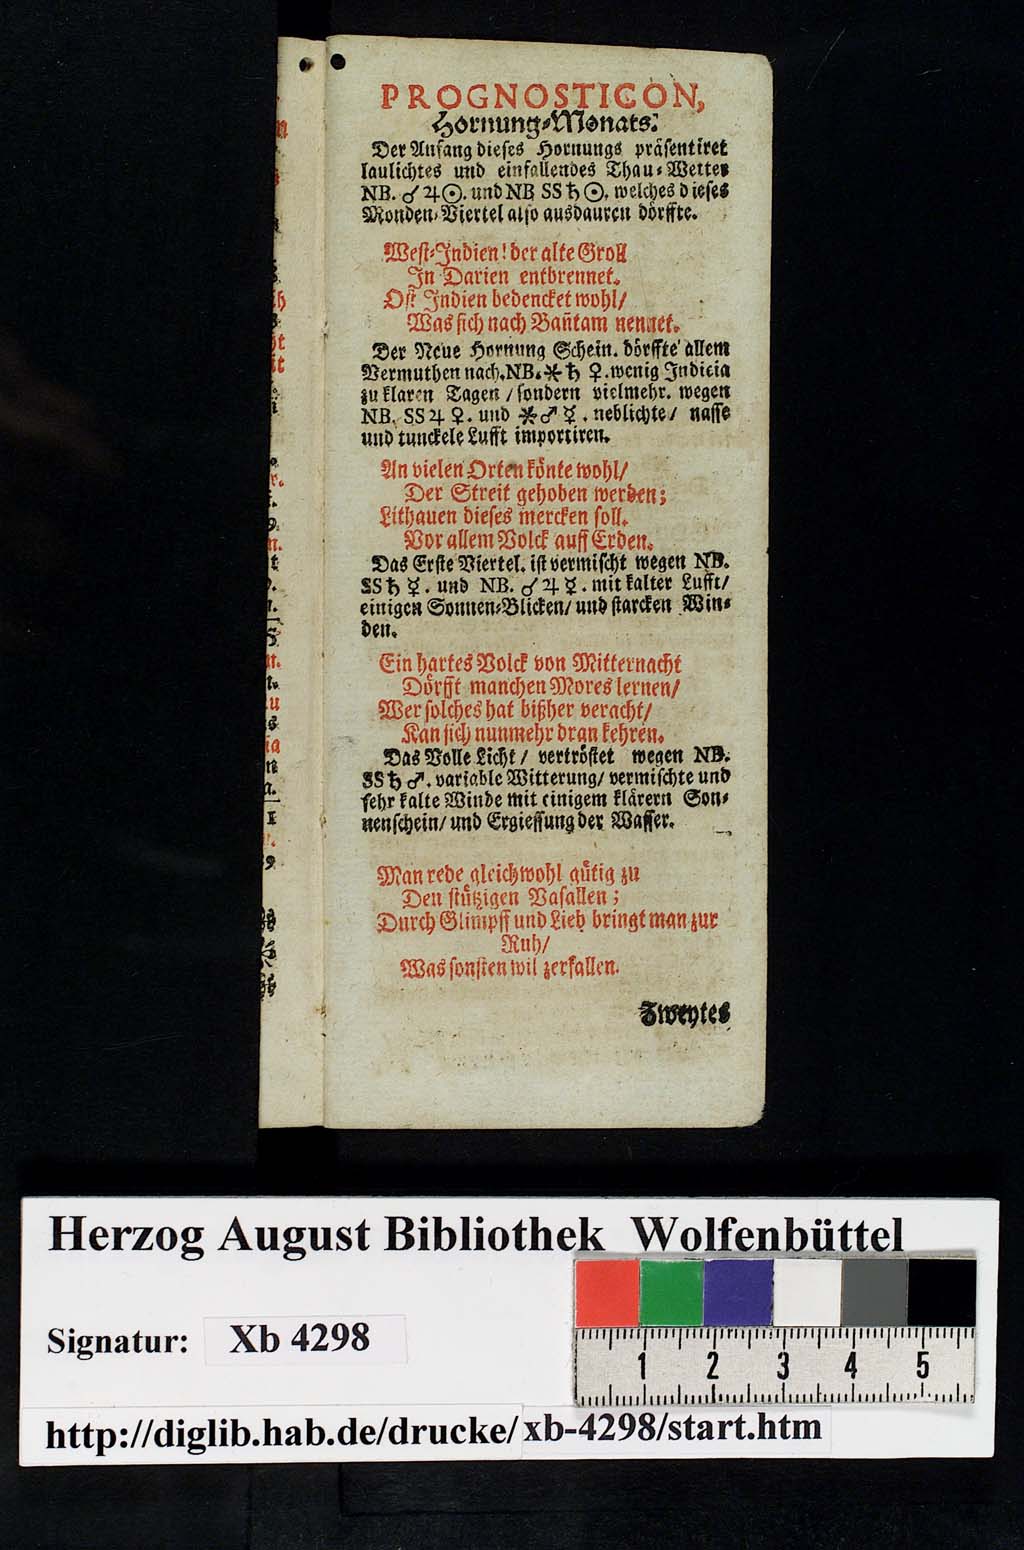 PROGNOSTICON,
Hornung-Monats.
Der Anfang dieses Hornungs präsentiret
laulichtes und einfallendes Thau-Wetter
NB. ☌ ♃ ☉. und NB SS ♄ ☉. welches dieses
Monden-Viertel also ausdauren dörffte.
West-Indien! der alte Groll
In Darien entbrennet.
Ost Indien bedencket wohl/
Was sich nach Bañtam nennet.
Der Neue Hornung Schein. dörffte allem
Vermuthen nach. NB. ⚹ ♄ ♀. wenig Indicia
zu klaren Tagen / sondern vielmehr. wegen
NB. SS ♃ ♀. und ⚹ ♂ ☿. neblichte/ nasse
und tunckele Lufft importiren.
An vielen Orten könte wohl/
Der Streit gehoben werden;
Lithauen dieses mercken soll.
Vor allem Volck auff Erden.
Das Erste Viertel. ist vermischt wegen NB.
SS ♄ ☿. und NB. ☌ ♃ ☿. mit kalter Lufft/
einigen Sonnen-Blicken/ und starcken Win-
den.
Ein hartes Volck von Mitternacht
Dörfft manchen Mores lernen/
Wer solches hat bißher veracht/
Kan sich nunmehr dran kehren.
Das Volle Licht / vertröstet wegen NB.
SS ♄ ♂. variable Witterung/ vermischte und
sehr kalte Winde mit einigem klärern Son-
nenschein/ und Ergiessung der Wasser.
Man rede gleichwohl gütig zu
Den stützigen Vasallen;
Durch Glimpff und Lieb bringt man zur
Ruh/
Was sonsten wil zerfallen.
Zweytes
Herzog August Bibliothek Wolfenbüttel
Signatur: Xb 4298
1 2 3 4 5
http://diglib.hab.de/drucke/xb-4298/start.htm